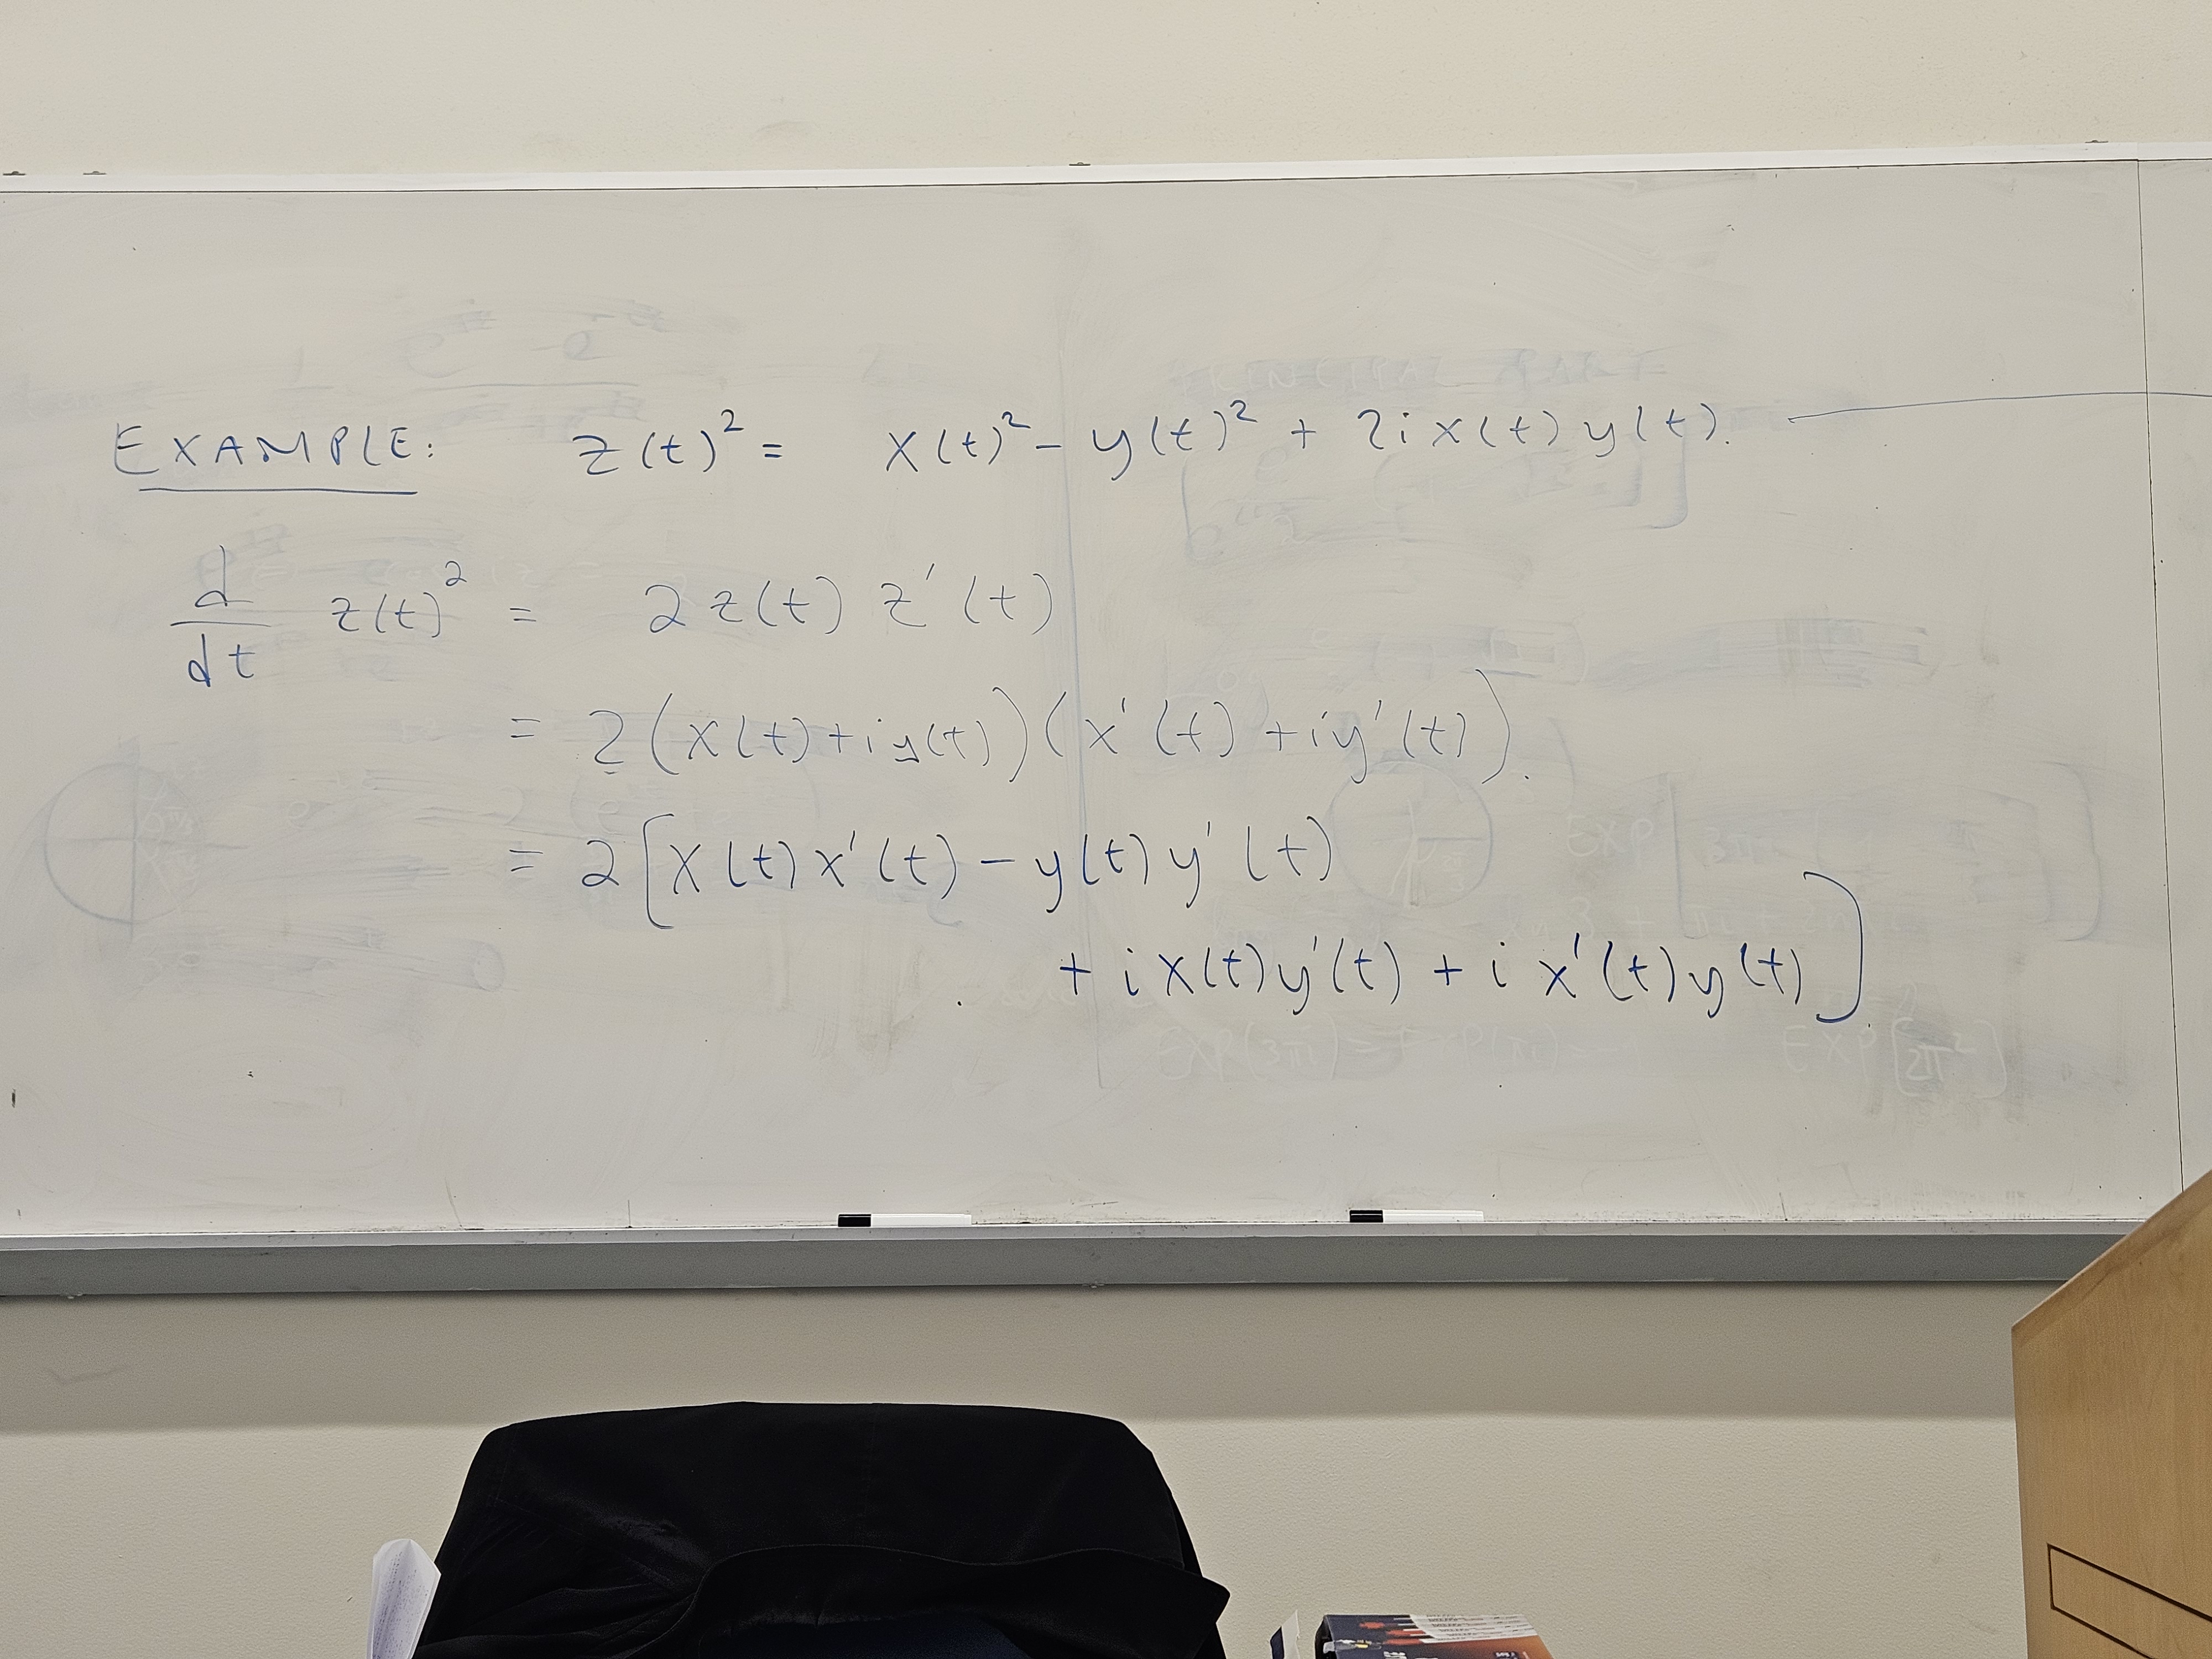 EXAMPLE: z(t)² = x(t)² - y(t)² + 2i x(t) y(t).
d/dt z(t)² = 2 z(t) z'(t)
= 2(x(t)+iy(t))(x'(t)+iy'(t)).
= 2[x(t)x'(t) - y(t)y'(t)
+ i x(t)y'(t) + i x'(t)y(t)]